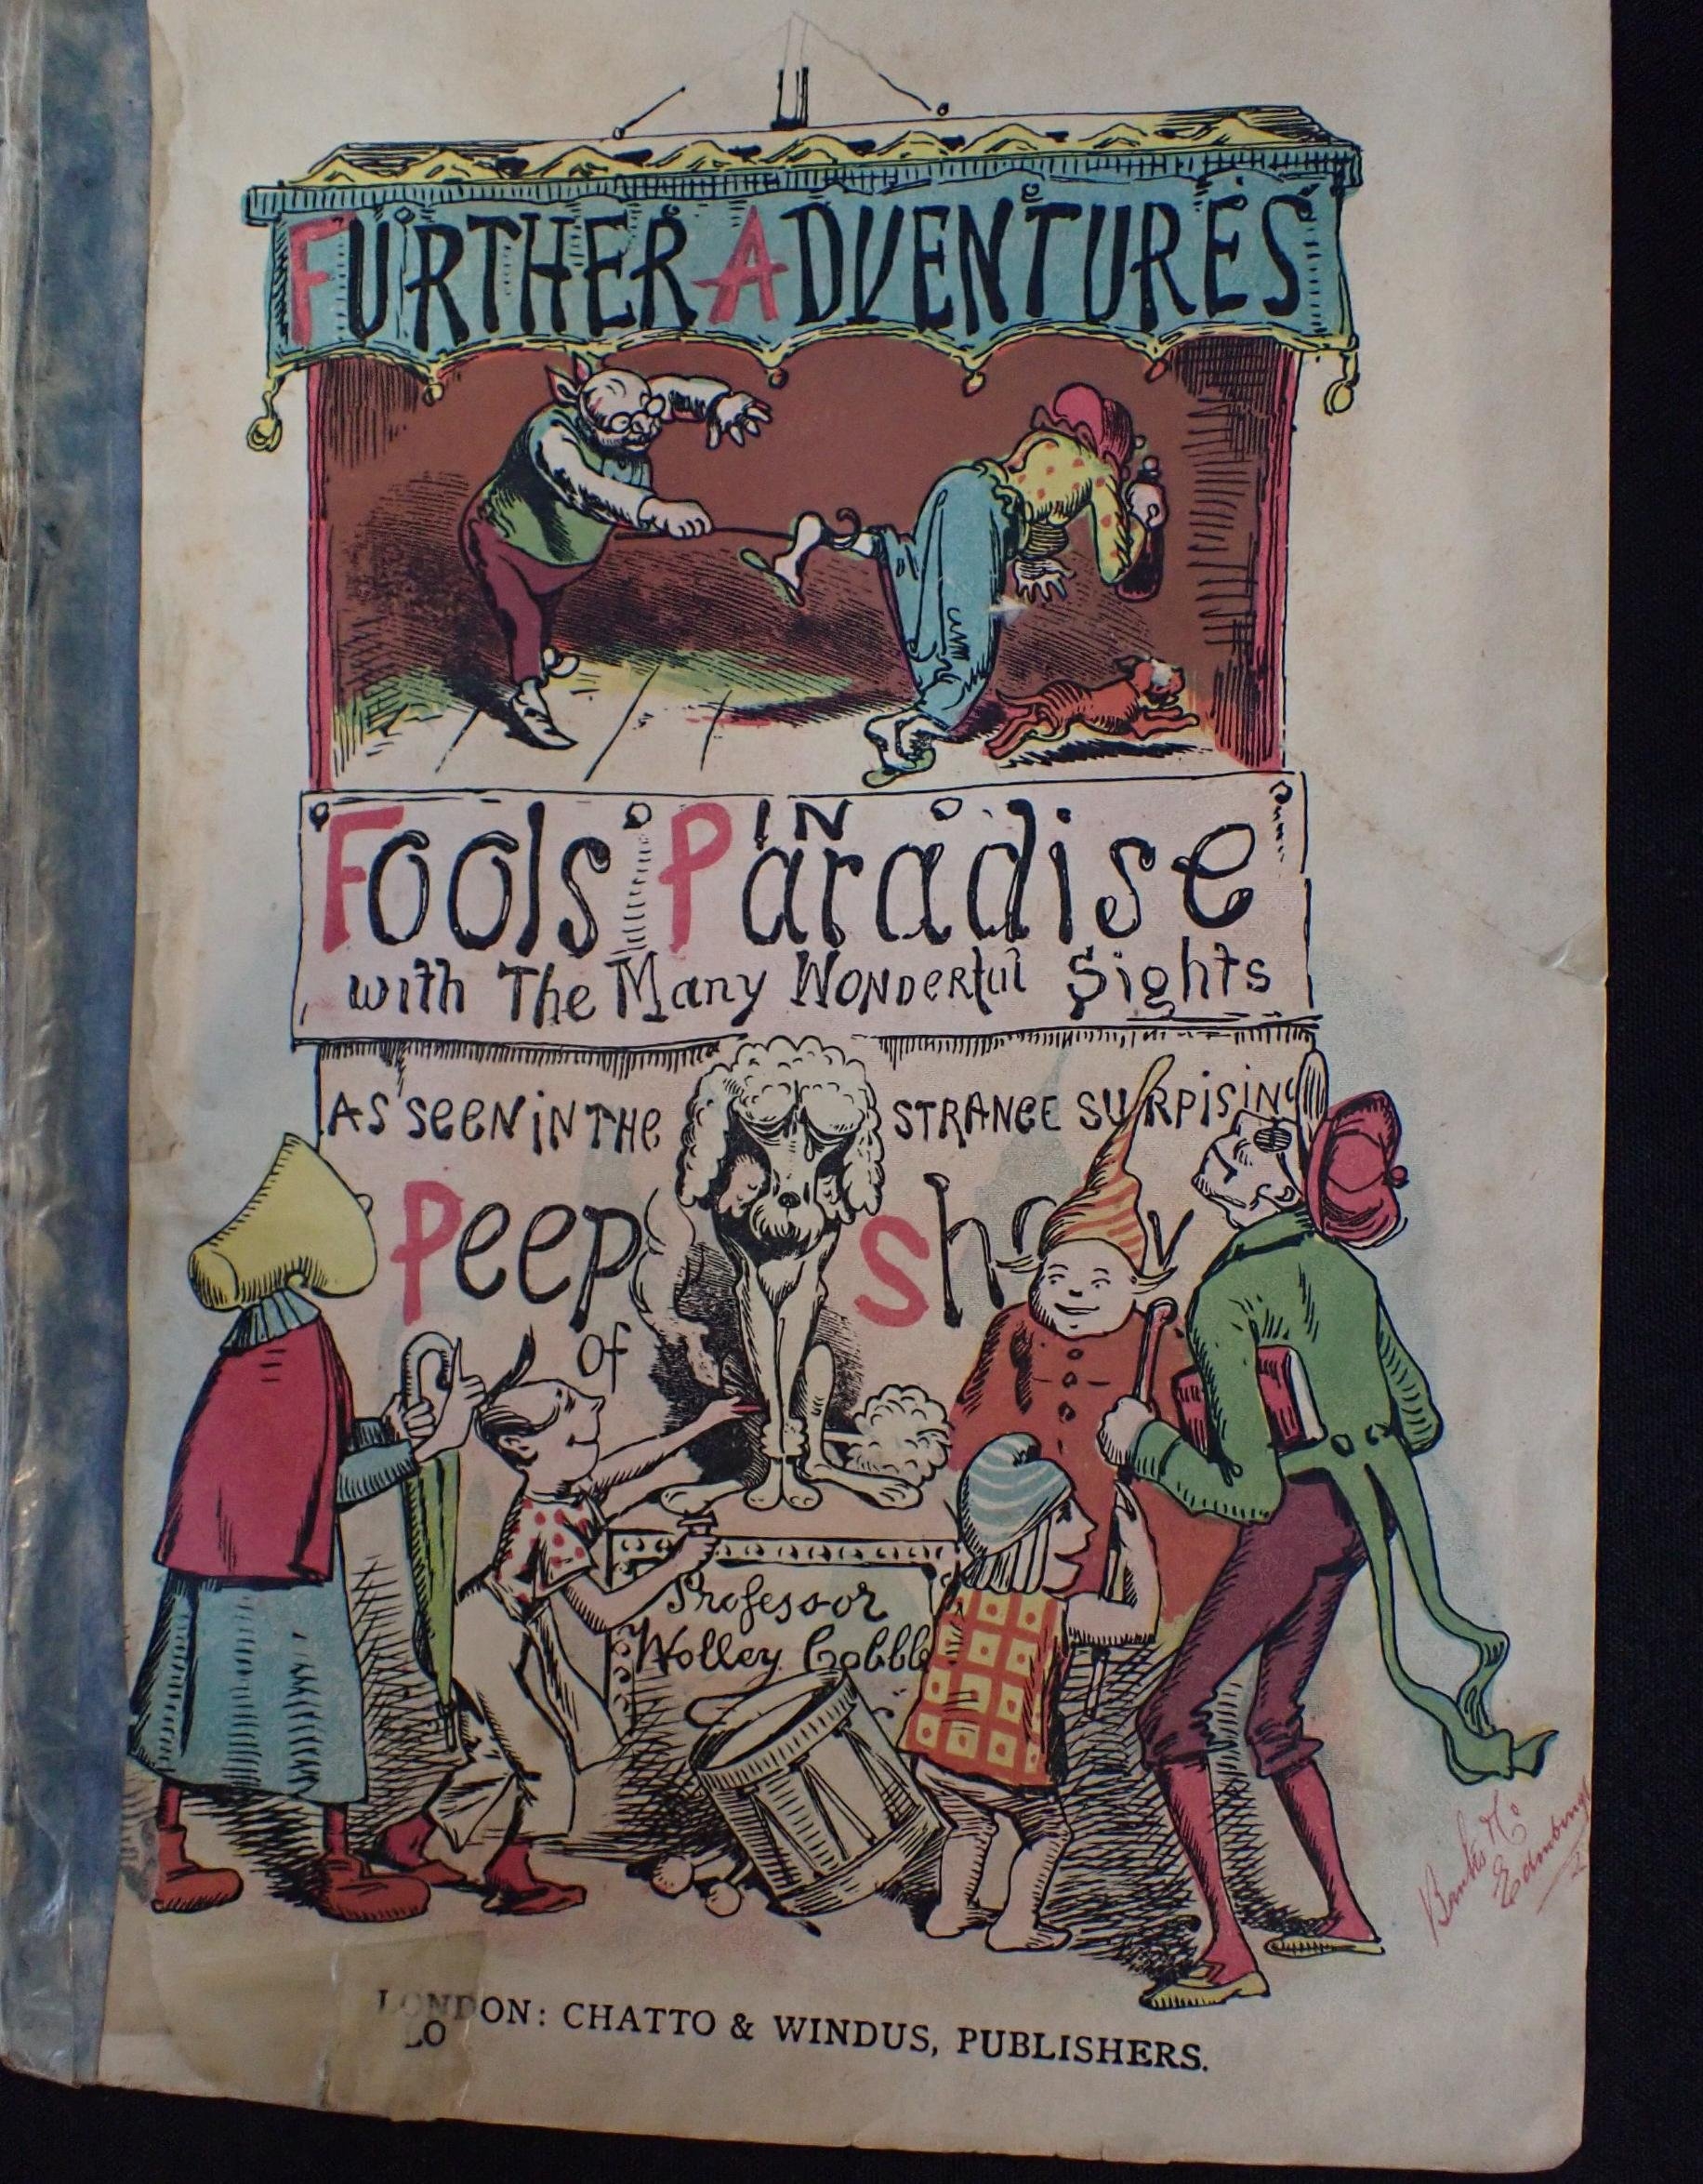 FURTHER ADVENTURES
IN
Fools Paradise
with The Many Wonderful Sights
AS SEEN iN THE STRANGE SURPRISING
Peep Show
of
Professor
Wolley Cobble
LONDON: CHATTO & WINDUS, PUBLISHERS.
LO
Edinburgh